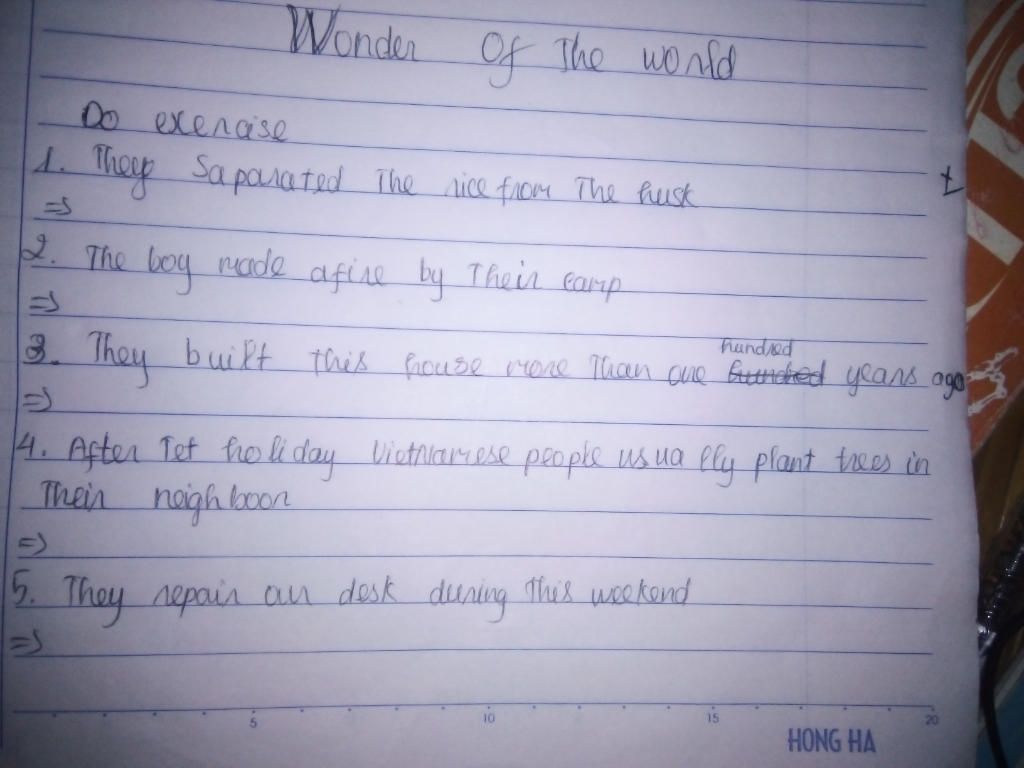 Wonder Of The world
Do exercise
1. They Saparated The rice from The husk
=>
2. The boy made a fire by Their camp
=>
hundred
3. They built this house more Than one hundred years ago
=>
4. After Tet holiday Vietnamese people usually plant trees in
Their neighboor
=>
5. They repair our desk during this weekend
=>
5 10 15 20
HONG HA